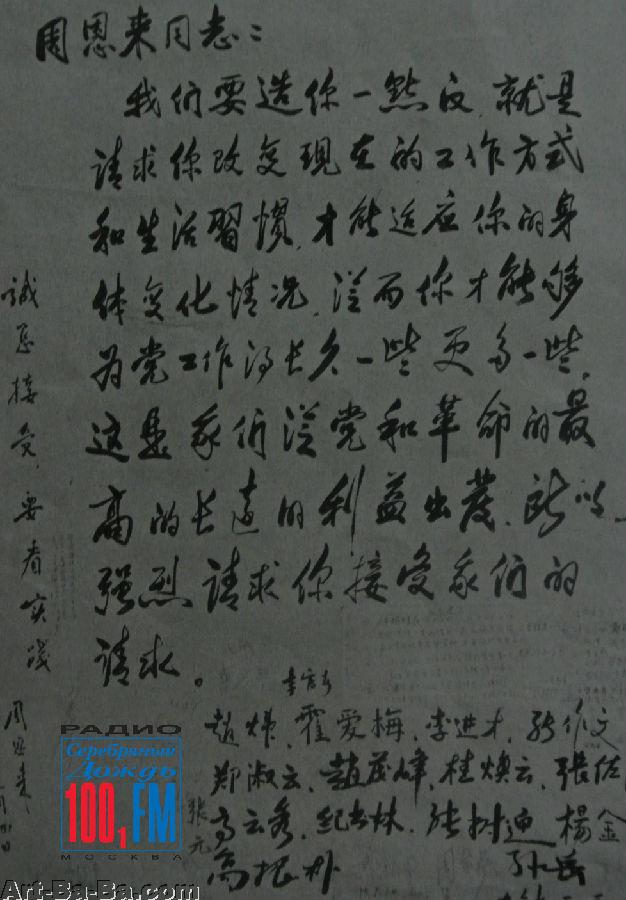 周恩来同志：
我们要造你一点反，就是
请求你改变现在的工作方式
和生活習慣，才能适应你的身
体变化情况，从而你才能够
为党工作得长久一些更多一些，
这是我们从党和革命的最
高的长远的利益出发，所以
强烈请求你接受我们的
请求。
赵炜，霍爱梅，李进才，张作文
郑淑云，趙茂峰，桂焕云，張佐
高云秀，纪書林，张树迎，楊金
张元
高振朴
诚恳接受，要看实践
周恩来
РАДИО
Серебряный
Дождь
100,1 FM
МОСКВА
Art-Ba-Ba.com
Art-Ba-Ba.com